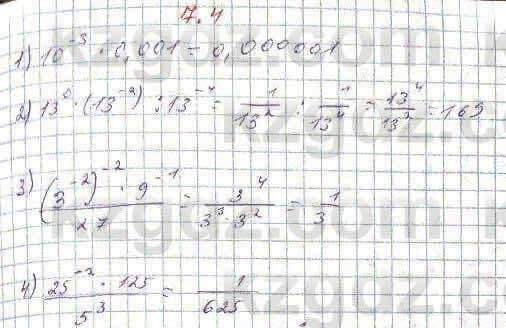 7.4
1) 10⁻³ · 0,001 = 0,000001
2) 13⁰ · (13⁻²) : 13⁻⁴ = 1/13² : 1/13⁴ = 13⁴/13² = 169
3) (3⁻²)⁻² · 9⁻¹ / 27 = 3⁴ / 3³ · 3² = 1/3
4) 25⁻² · 125 / 5³ = 1/625